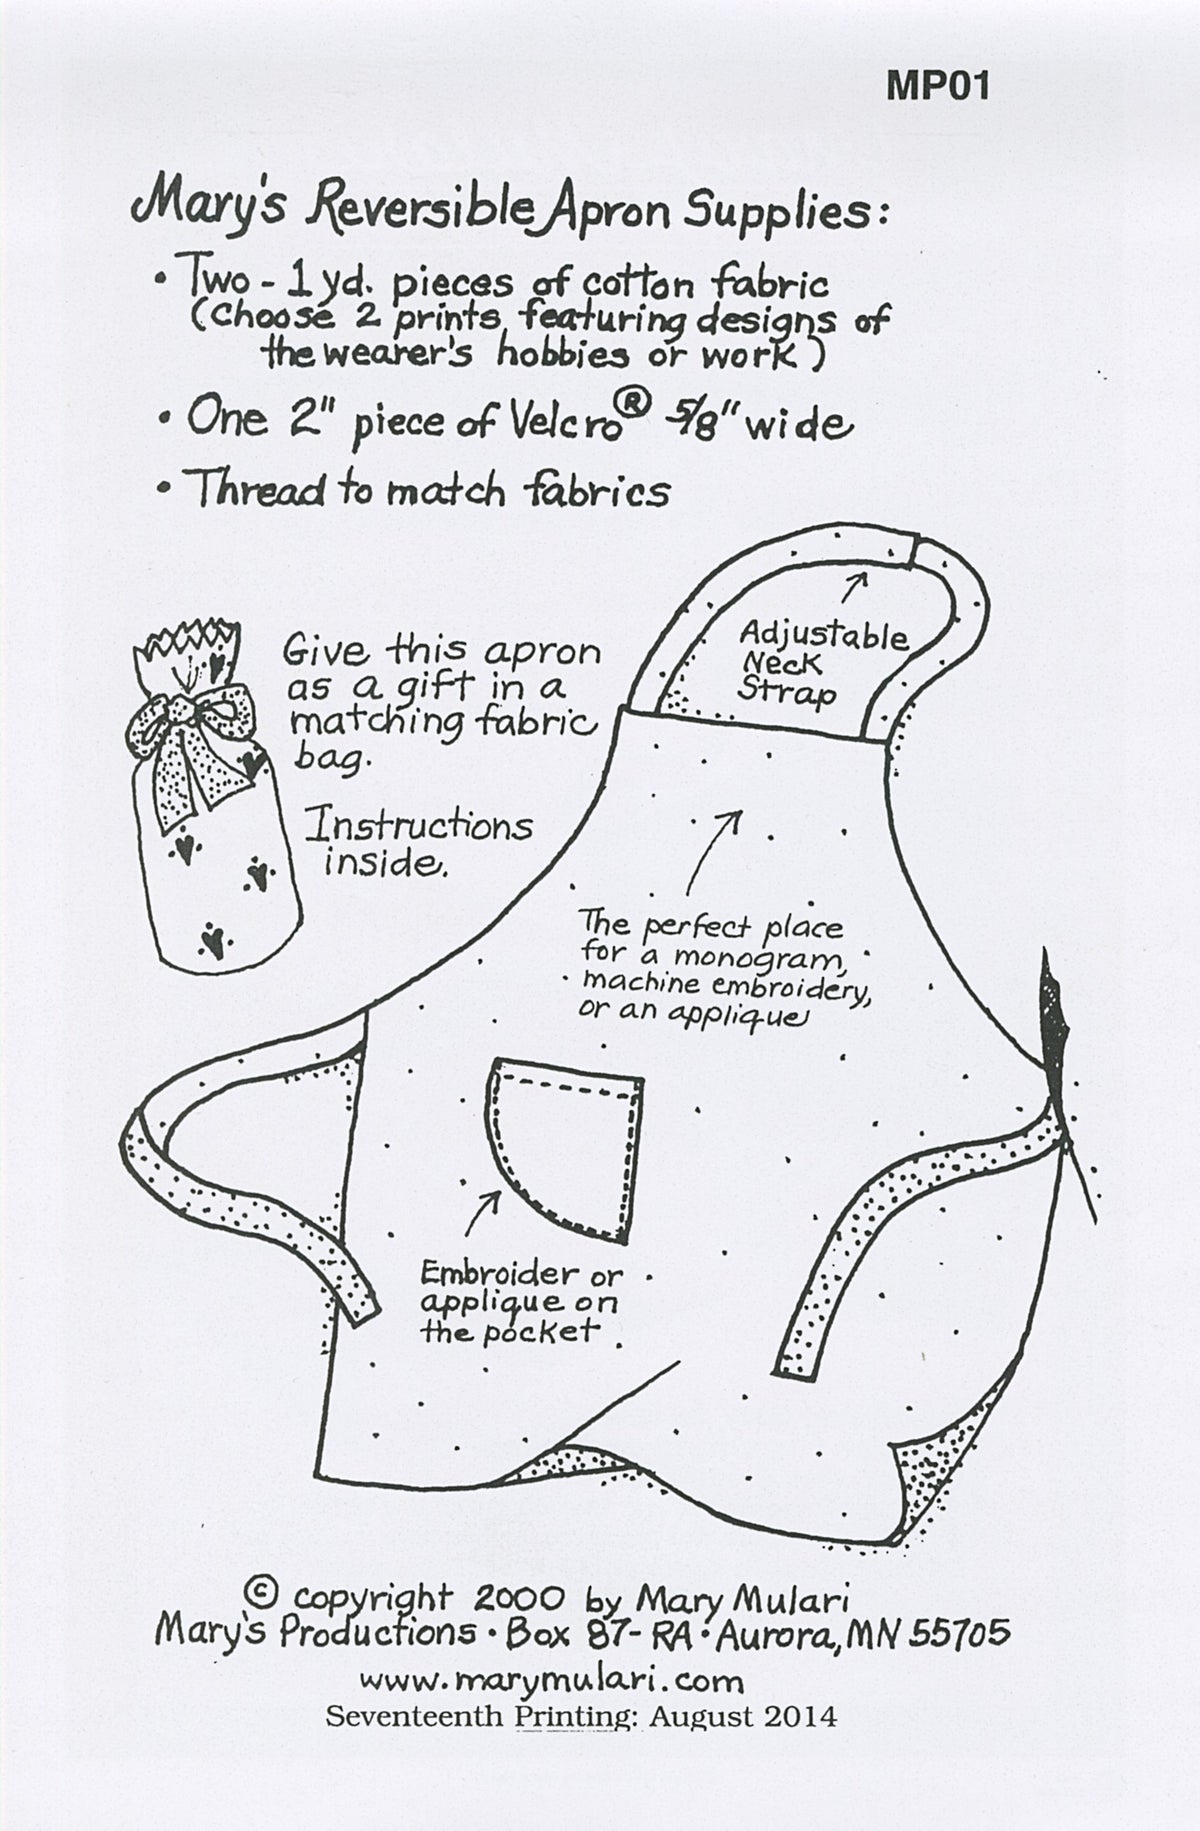 MP01
Mary's Reversible Apron Supplies:
• Two - 1 yd. pieces of cotton fabric
(Choose 2 prints, featuring designs of
the wearer's hobbies or work)
• One 2" piece of Velcro® 5/8" wide
• Thread to match fabrics
Adjustable
Neck
Strap
Give this apron
as a gift in a
matching fabric
bag.
Instructions
inside.
The perfect place
for a monogram,
machine embroidery,
or an applique
Embroider or
applique on
the pocket
© copyright 2000 by Mary Mulari
Mary's Productions • Box 87-RA • Aurora, MN 55705
www.marymulari.com
Seventeenth Printing: August 2014